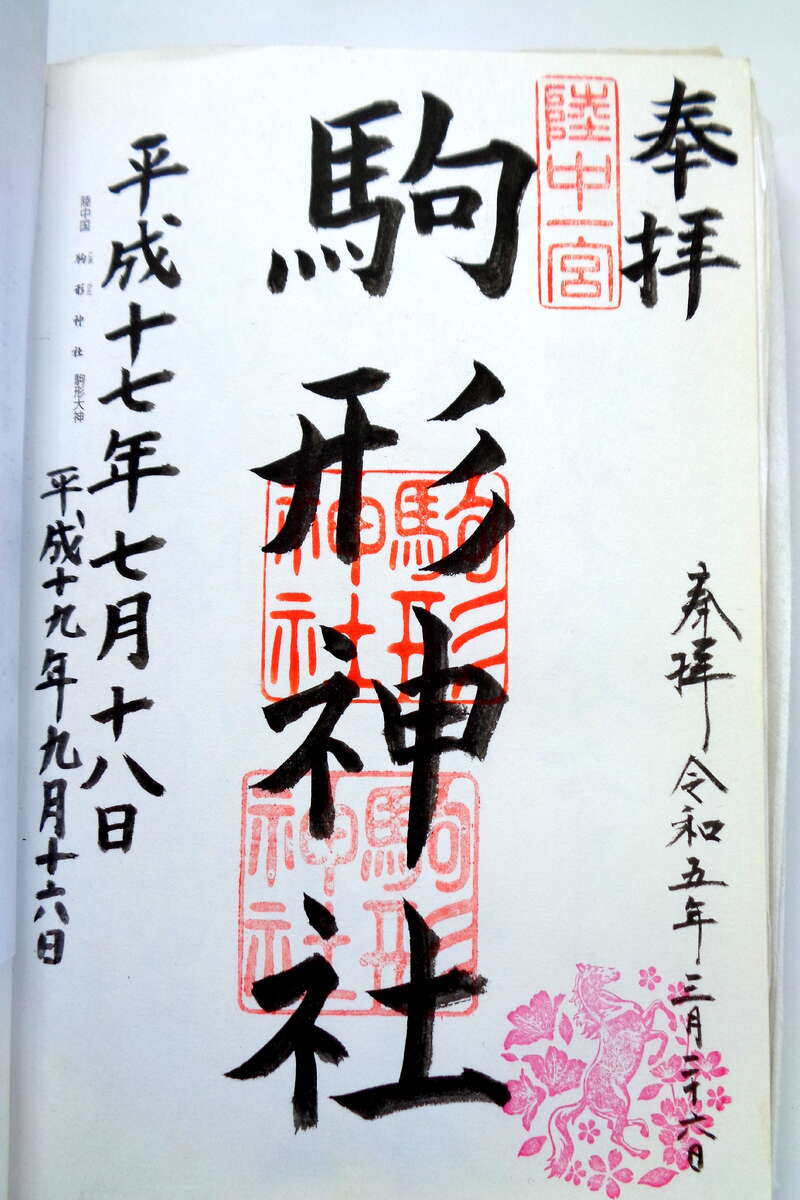 奉拝
陸中一宮
駒形神社
駒形
神社
駒形
神社
奉拝 令和五年三月二十六日
平成十七年七月十八日
陸中国 駒形神社 駒形大神
平成十九年九月十六日